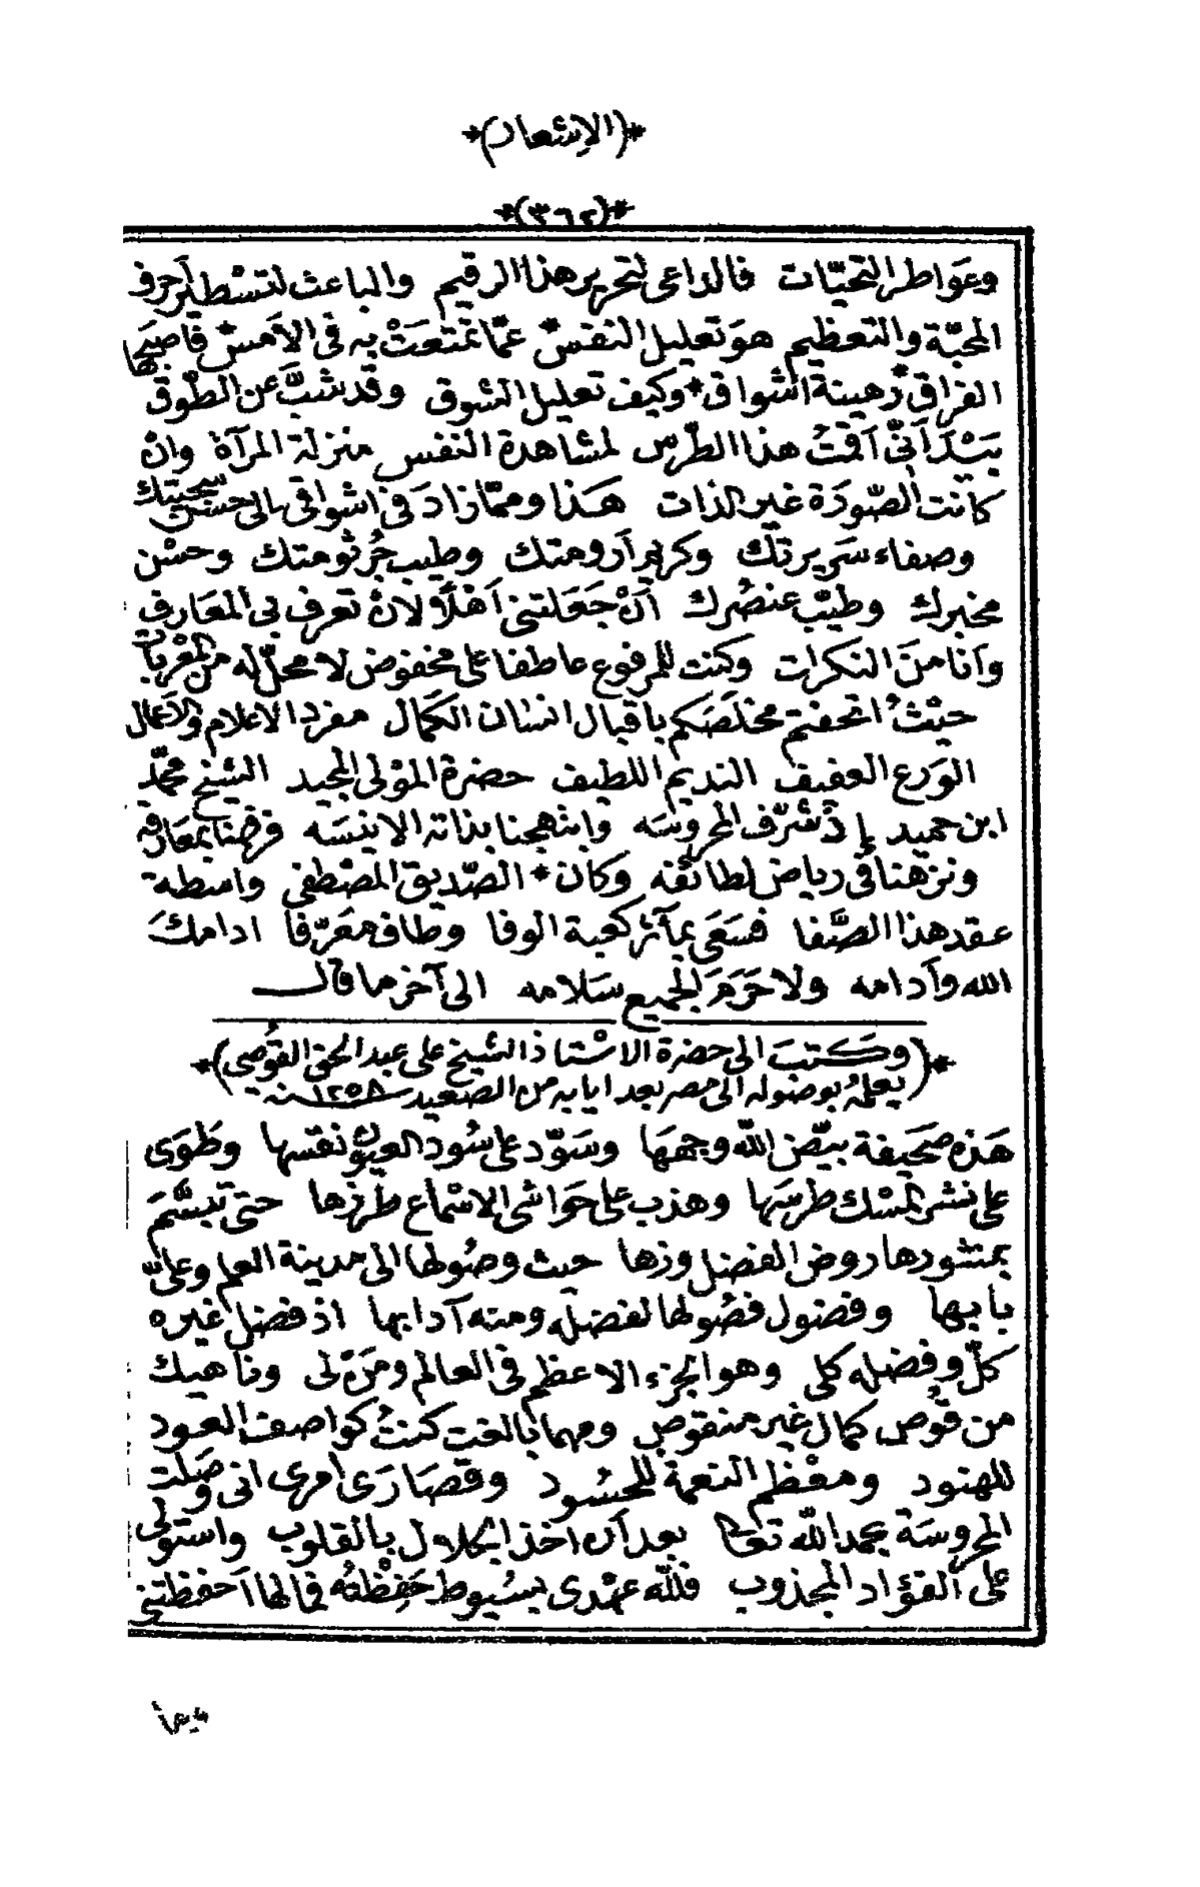 *(الاشعار)*
*(٣٦٢)*
وعَواطر التحيّات فالداعى لتحرير هذا الرقيم والباعث لتسْطير أحرف
المحبّة والتعظيم هوَ تعليل النفس* عمّا تمتعَتْ به فى الأمس* فاصبَحها
الفراق* رَهينة اشواق* وكيف تعليل الشوق وقد شبَّ عن الطّوق
بَيْدَ أنّى أقمتُ هذا الطّرس لمشاهدة النفس منزلة المرآة وانْ
كانت الصّورَة غير الذات هَذا وممّا زادَ فى اشواقى الى حسن سجيتك
وصفاء سَريرتك وكريم أرومتك وطيب جُرثومتك وحسْن
مخبرك وطيْب عنصُرك أنْ جَعَلتنى أهْلًا لانْ تعرف بى المعَارف
وأنا منَ النكرات وكنت للمرفوع عاطفا على مخفوض لا محلّ له من المعْربات
حيْثُ اتحفتم مخلصَكم باقبال انسان الكمَال مفرد الاعلام والأعمال
الوَرع العفيف النديم اللطيف حضرة الموْلى المجيد الشيخ محمّد
ابن حميد إذْ شرّف المحروسَه وابتهجنا بذاته الانيسَه فرحمنا بمعَارفه
ونزهنا فى رياض لطائفه وكان* الصّديق المصْطفى واسطة
عقد هذا الصَّفا فسَعَى بمآثر كعبة الوفا وطاف معَرّفا ادامكَ
الله وأدامه ولا حَرَمَ الجميع سَلامه الى آخر ما قال
*(وكتبَ الى حضرة الاسْتاذ الشيخ على عبد الحق القوُصى)*
يعلمهُ بوصُوله الى مصر بعد ايابه من الصعيد سنة ١٢٥٨
هَذه صَحيفة بيّض الله وجهَهَا وسَوّد على سُود العيون نقسها وطوَى
على نشر المسْك طرسَها وهذب على حَواشى الاسْماع طرزها حتى تبسَّمَ
بمنثورها روض الفضل وزها حيث وصُولها الى مدينة العلم وعلىّ
بابها وفضول فصُولها لفضله ومنه آدابها اذ فضل غيره
كلّ وفضله كلى وهو الجزء الاعظم فى العالم ومَنْ لى وناهيك
من قُوص كمال غير منقوص ومهما بالغت كنتُ كواصف العود
للهنود ومعْظم النعمة للحسُود وقصَارَى أمرى انى وصَلت
المحروسَة بحمد الله تعالى بعد أن أخذ الكلال بالقلوب واستولى
على الفؤاد المجذوب فلله عهْدى بسُيوط حَفِظْتُه فما لها أحفظتنى